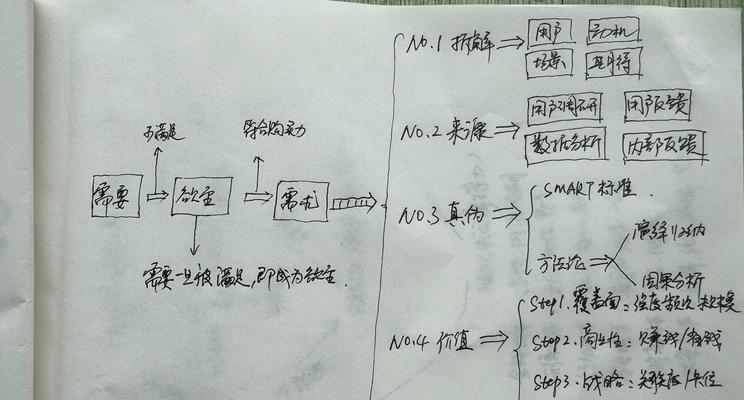 不满足
符合购买力
需要
欲望
需求
需要一旦被满足,即成为欲望.
No.1 拆解
用户 动机
场景 期待
No.2 来源
用户调研 用户反馈
数据分析 内部反馈
No.3 真伪
SMART标准.
方法论
演绎归纳
因果分析
No.4 价值
Step1.覆盖面:强度频次规模
Step2.商业性:赚钱/省钱
Step3.战略:关联度/卡位